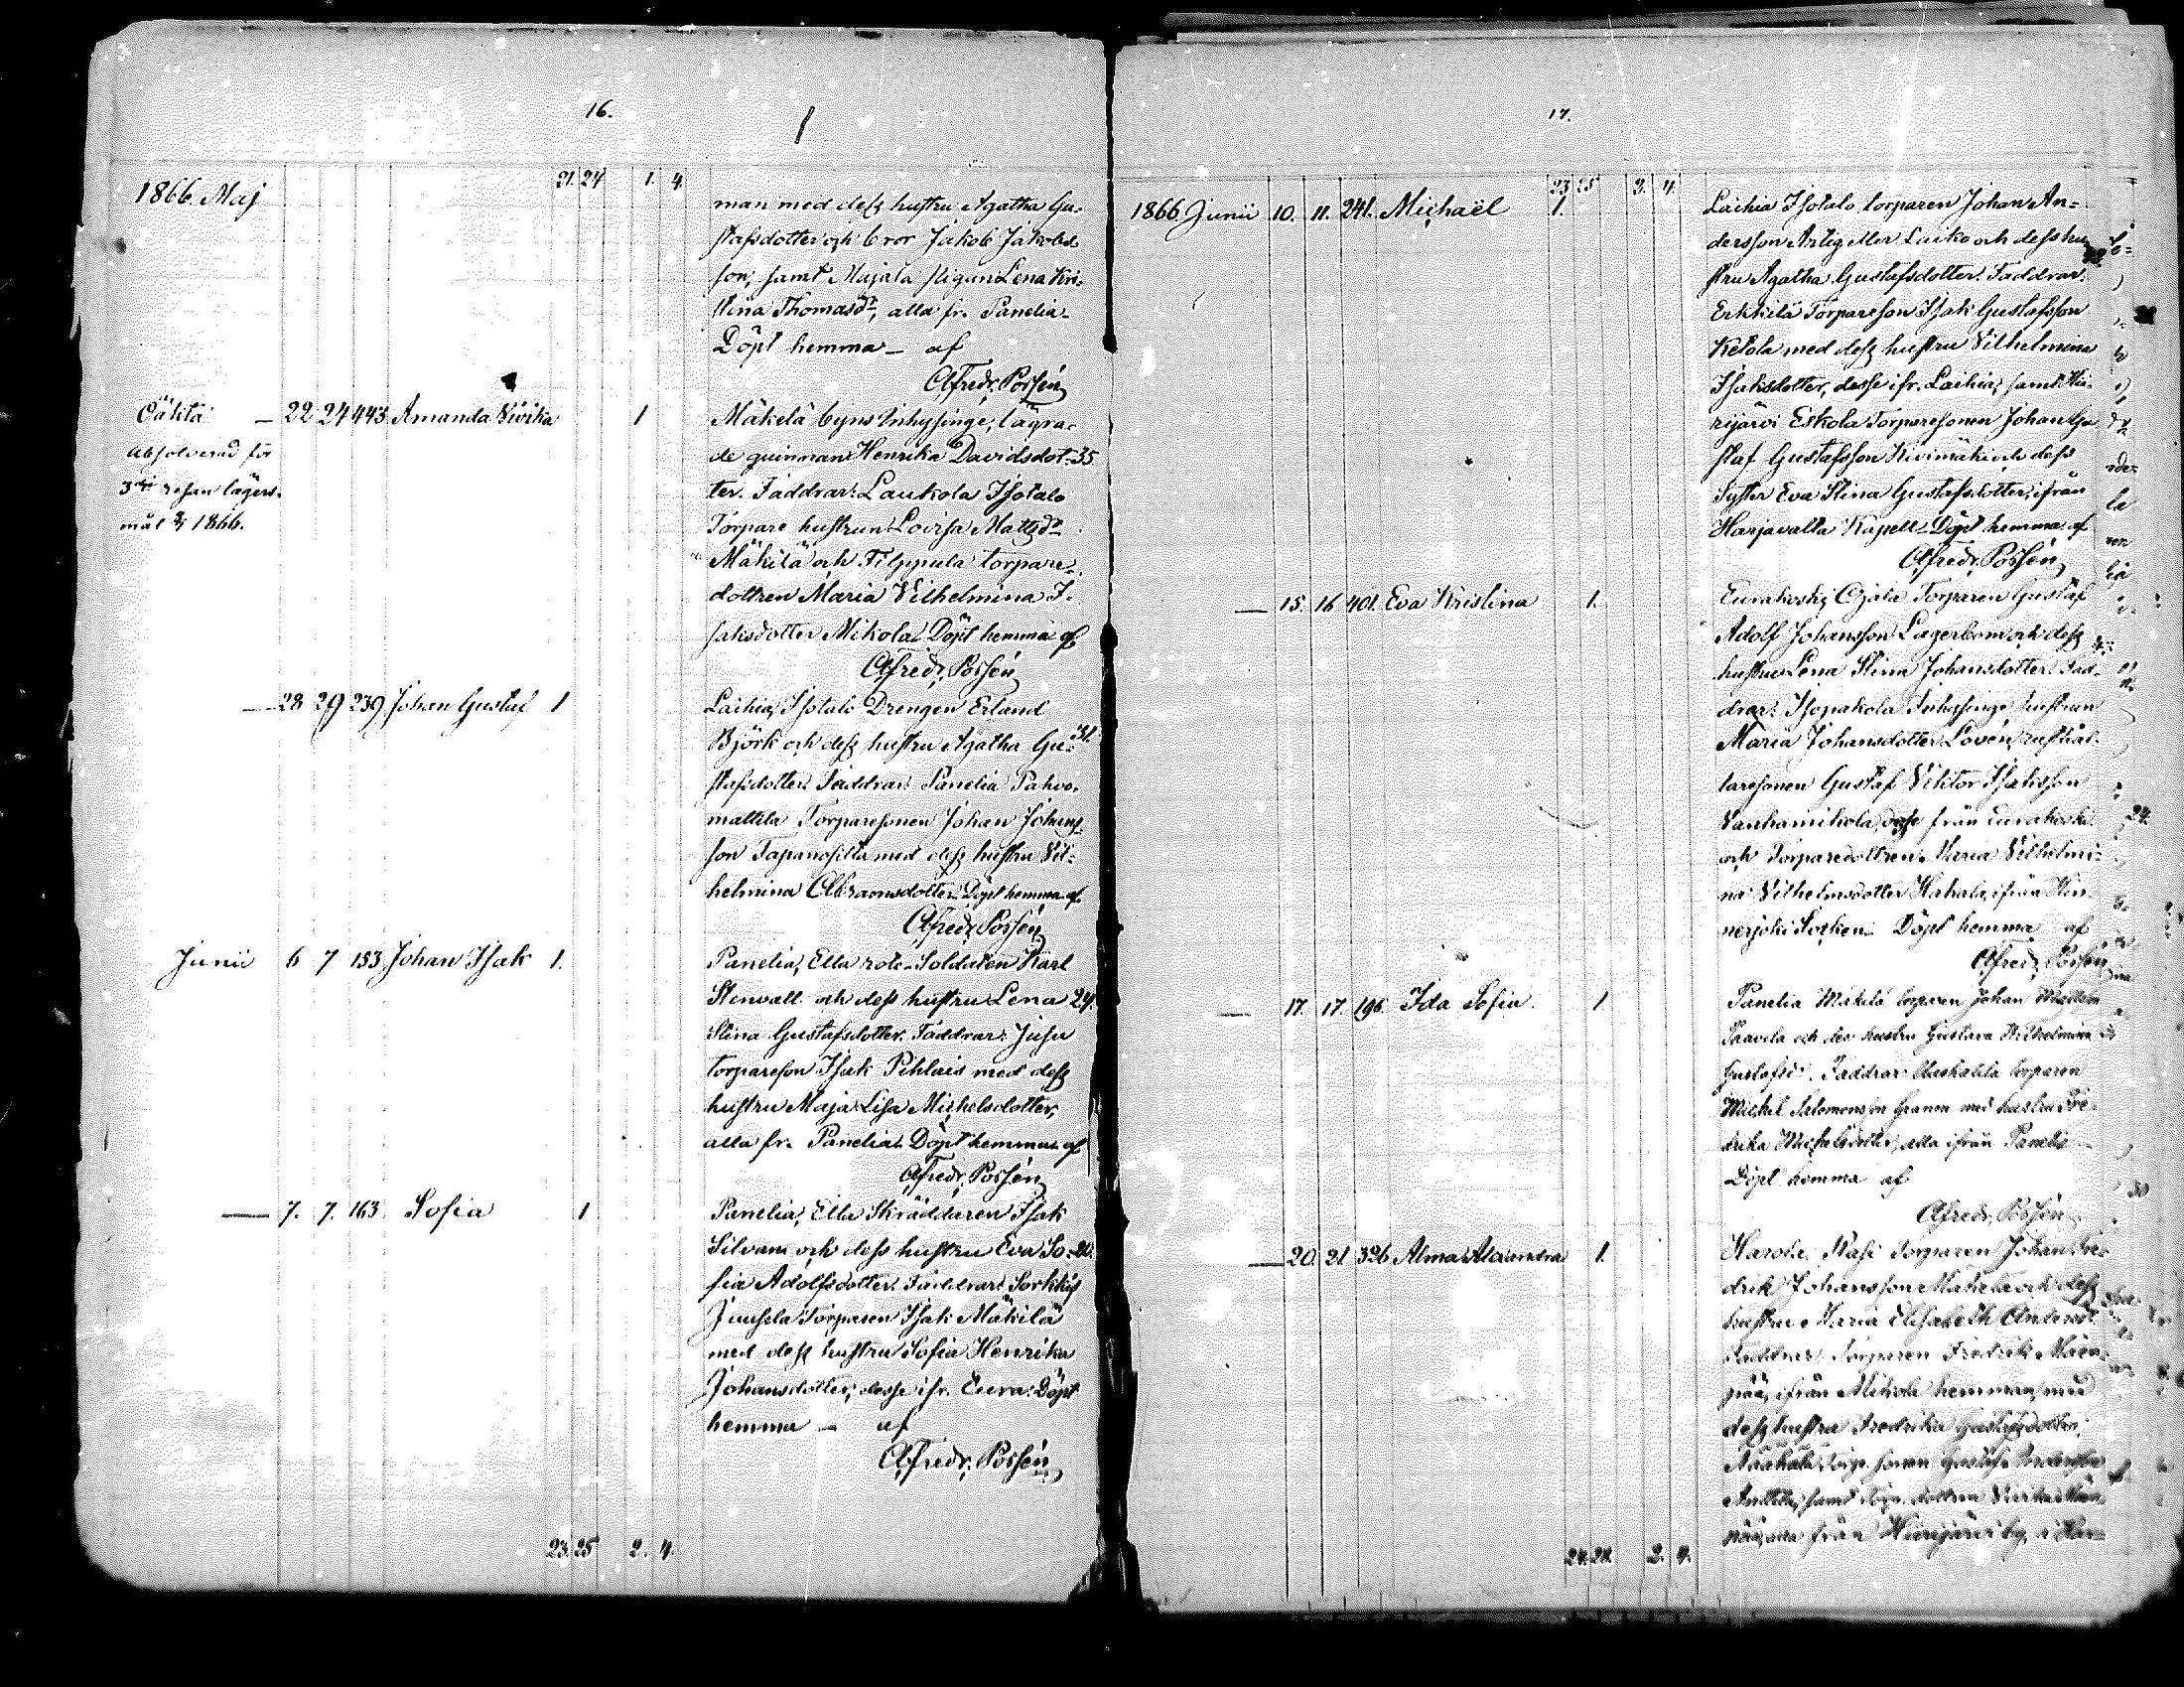 16.
21. 24 1. 4.
1866. Maj
man med dess hustru Agatha Gu-
stafsdotter och bror Jakob Jakobs-
son, samt Majala pigan Lena Kri-
stina Thomasdr, alla fr. Panelia.
Döpt hemma – af
Alfredr. Possén
Oäkta — 22 24 443 Amanda Vivika 1 Mäkelä byns Inhysinge, lägra-
Absolverad för
de quinnan Henrika Davidsdot- 35
3dje resan lägers-
ter. Faddrar: Laukola Isotalo
mål 1866.
Torpare hustrun Lovisa Mattsdr
Mäkilä och Filppula torpare-
dottren Maria Vilhelmina I-
saksdotter Mikola. Döpt hemma af
Alfredr. Possén
— 28 29 239 Johan Gustaf 1 Laihia, Isotalo Drengen Erland
Björk och dess hustru Agatha Gu- 31.
stafsdotter. Faddrar: Panelia Pahvo-
mattila Torparesonen Johan Johans-
son Tapanositta med dess hustru Vil-
helmina Abramsdotter. Döpt hemma af
Alfredr. Possén
Junii 6 7 153 Johan Isak 1. Panelia, Ella rote-Soldaten Karl
Stenvall och dess hustru Lena 24.
Stina Gustafsdotter. Faddrar: Jusu
torpareson Isak Pihlais med dess
hustru Maja Lisa Michelsdotter,
alla fr. Panelia. Döpt hemma af
Alfredr. Possén
— 7. 7. 163 Sofia 1 Panelia, Ella Skräddaren Isak
Silvan och dess hustru Eva So-
fia Adolfsdotter. Faddrar: Sorkkis
Juusela Torparen Isak Mäkilä
med dess hustru Sofia Henrika
Johansdotter, desse ifr. Eura. Döpt
hemma — af
Alfredr. Possén
23. 25 2. 4.
17.
23 25 2. 4.
1866. Junii 10. 11. 241. Michaël 1. Laihia Isotalo torparen Johan An-
dersson Artig eller Luiko och dess hu-
stru Agatha Gustafsdotter. Faddrar:
Erkkilä Torpareson Isak Gustafsson
Ketola med dess hustru Vilhelmina
Isaksdotter, desse ifr. Laihia, samt Hii-
rijärvi Eskola Torparesonen Johan Gu-
staf Gustafsson Kivimäki och dess
Syster Eva Stina Gustafsdotter, ifrån
Harjavalta Kapell. Döpt hemma af
Alfredr. Possén
— 15. 16 401. Eva Kristina 1. Eurakoski, Ojala Torparen Gustaf
Adolf Johansson Lagerbom och dess
hustru Lena Stina Johansdotter. Fad-
drar: Isopakola Inhysinge hustrun
Maria Johansdotter Lovén, rusthål-
laresonen Gustaf Viktor Isaksson
Vanhamikola, desse från Eurakoski
och Torparedottren Maria Vilhelmi-
na Vilhelmsdotter Hahala, ifrån Hin-
nerjoki Socken. Döpt hemma af
Alfredr. Possén
— 17. 17. 196. Ida Sofia. 1 Panelia Mäkelä torparen Johan Mattsson
Paavola och des hustru Gustava Wilhelmina
Gustafsd. Faddrar: torparen
Michel Salomonsson Granen med hustru Fre-
drika Michelsdotter, alla ifrån Panelia
Döpt hemma af
Alfredr. Possén
— 20. 21. 326. Alma Alexandra 1. Harola, Stafi Torparen Johan Fre-
drik Johansson Mahala och dess
hustru Maria Elisabeth Andersd.
Faddrar: Torparen Fredrik
pää, ifrån Mikola hemman, med
dess hustru Fredrika Gustafsdotter,
Torp. sonen Gustaf
Anttila, samt torp. dottren
från Hiirijärvi by, i Har-
24. 28. 2. 4.